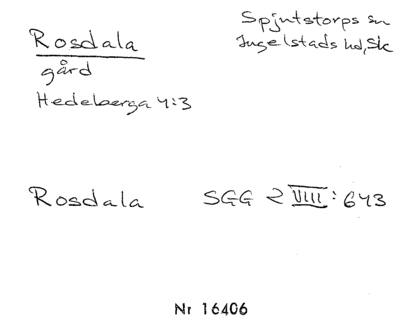 Rosdala
gård
Hedeberga 4:3
Spjutstorps sn
Ingelstads hd, Sk
Rosdala SGG 2 VIIII: 643
Nr 16406